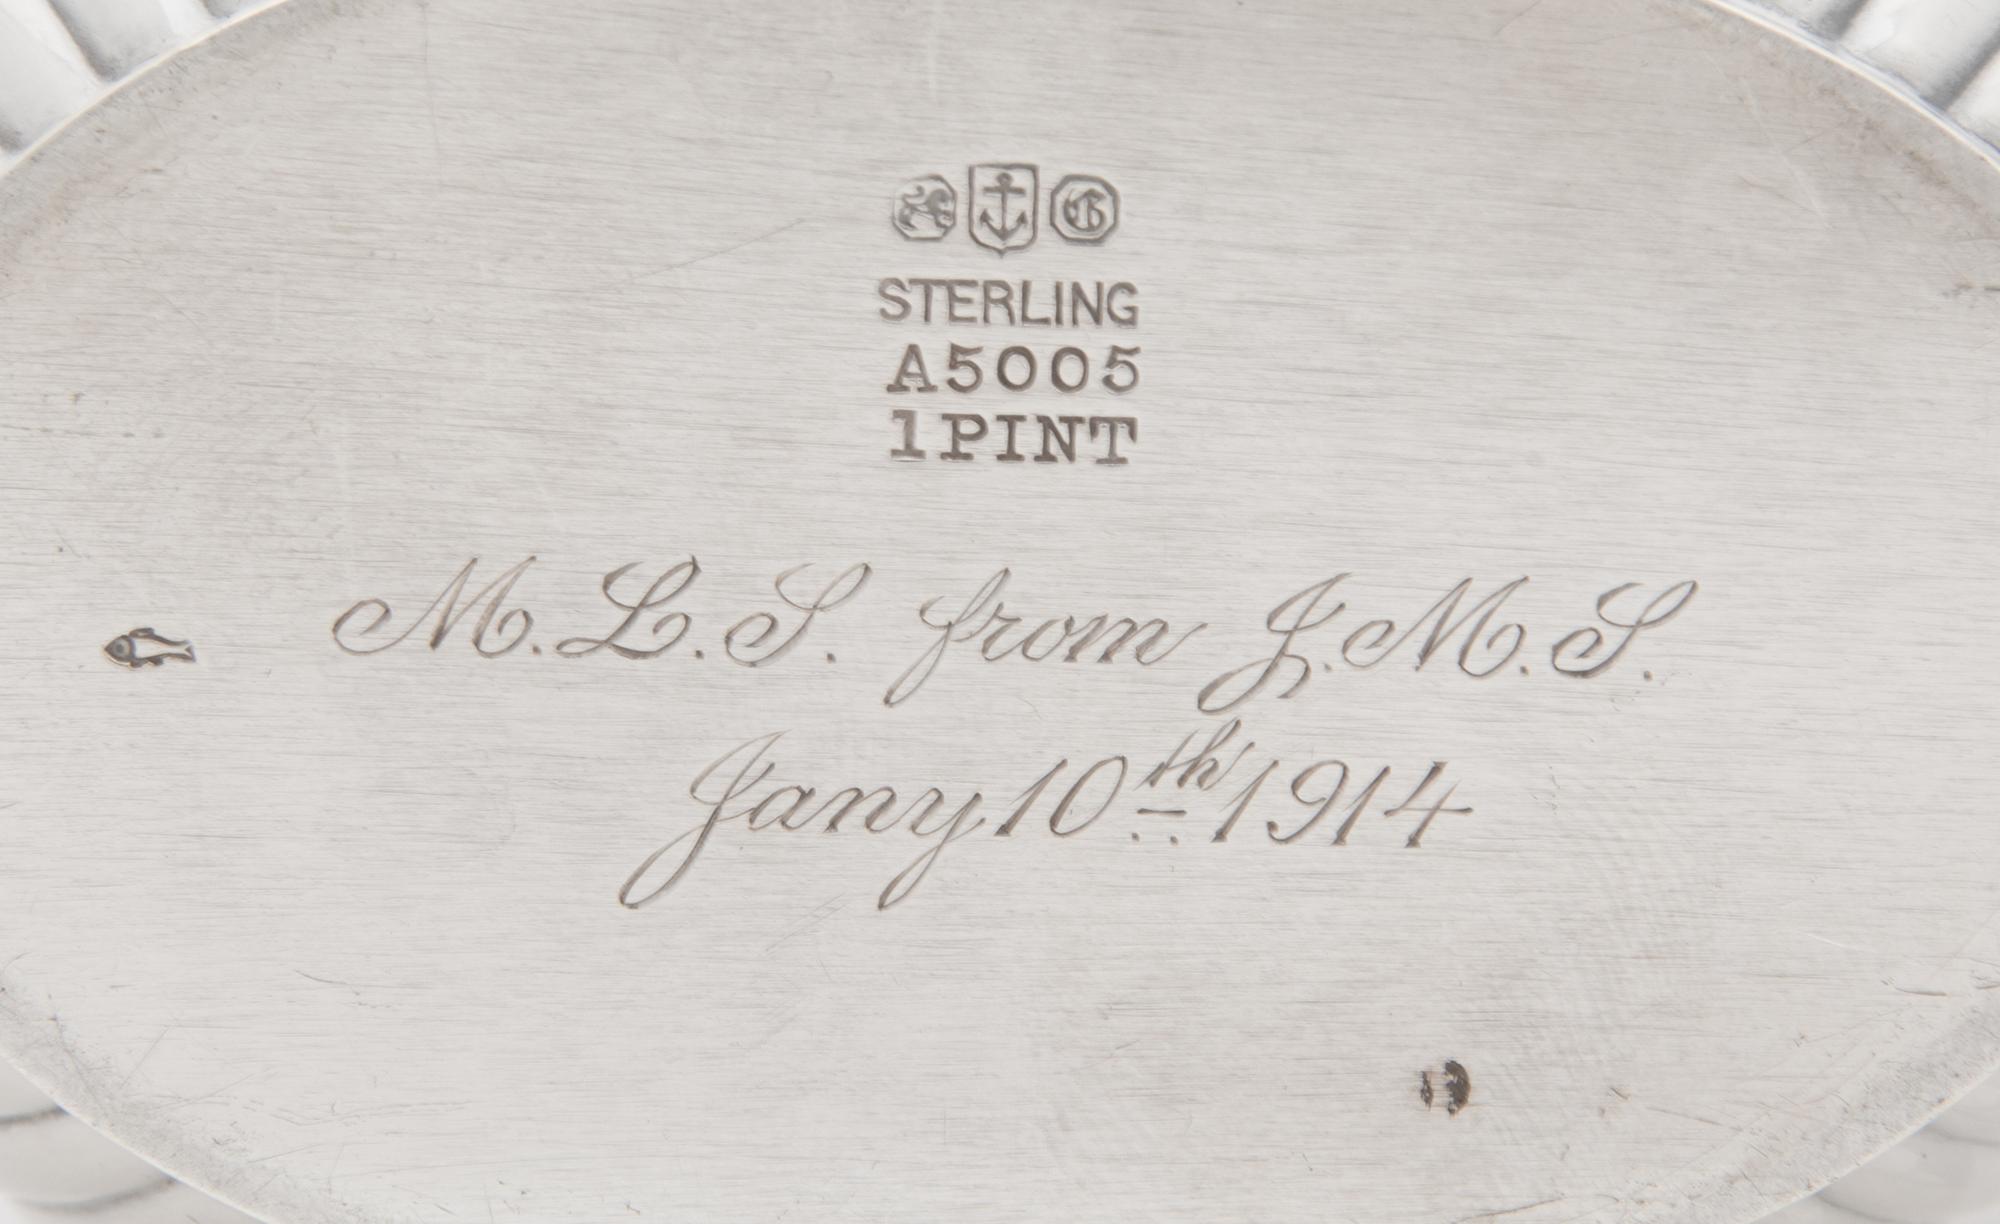 G
STERLING
A5005
1 PINT
M. L. S. from J. M. S.
Jany 10th 1914